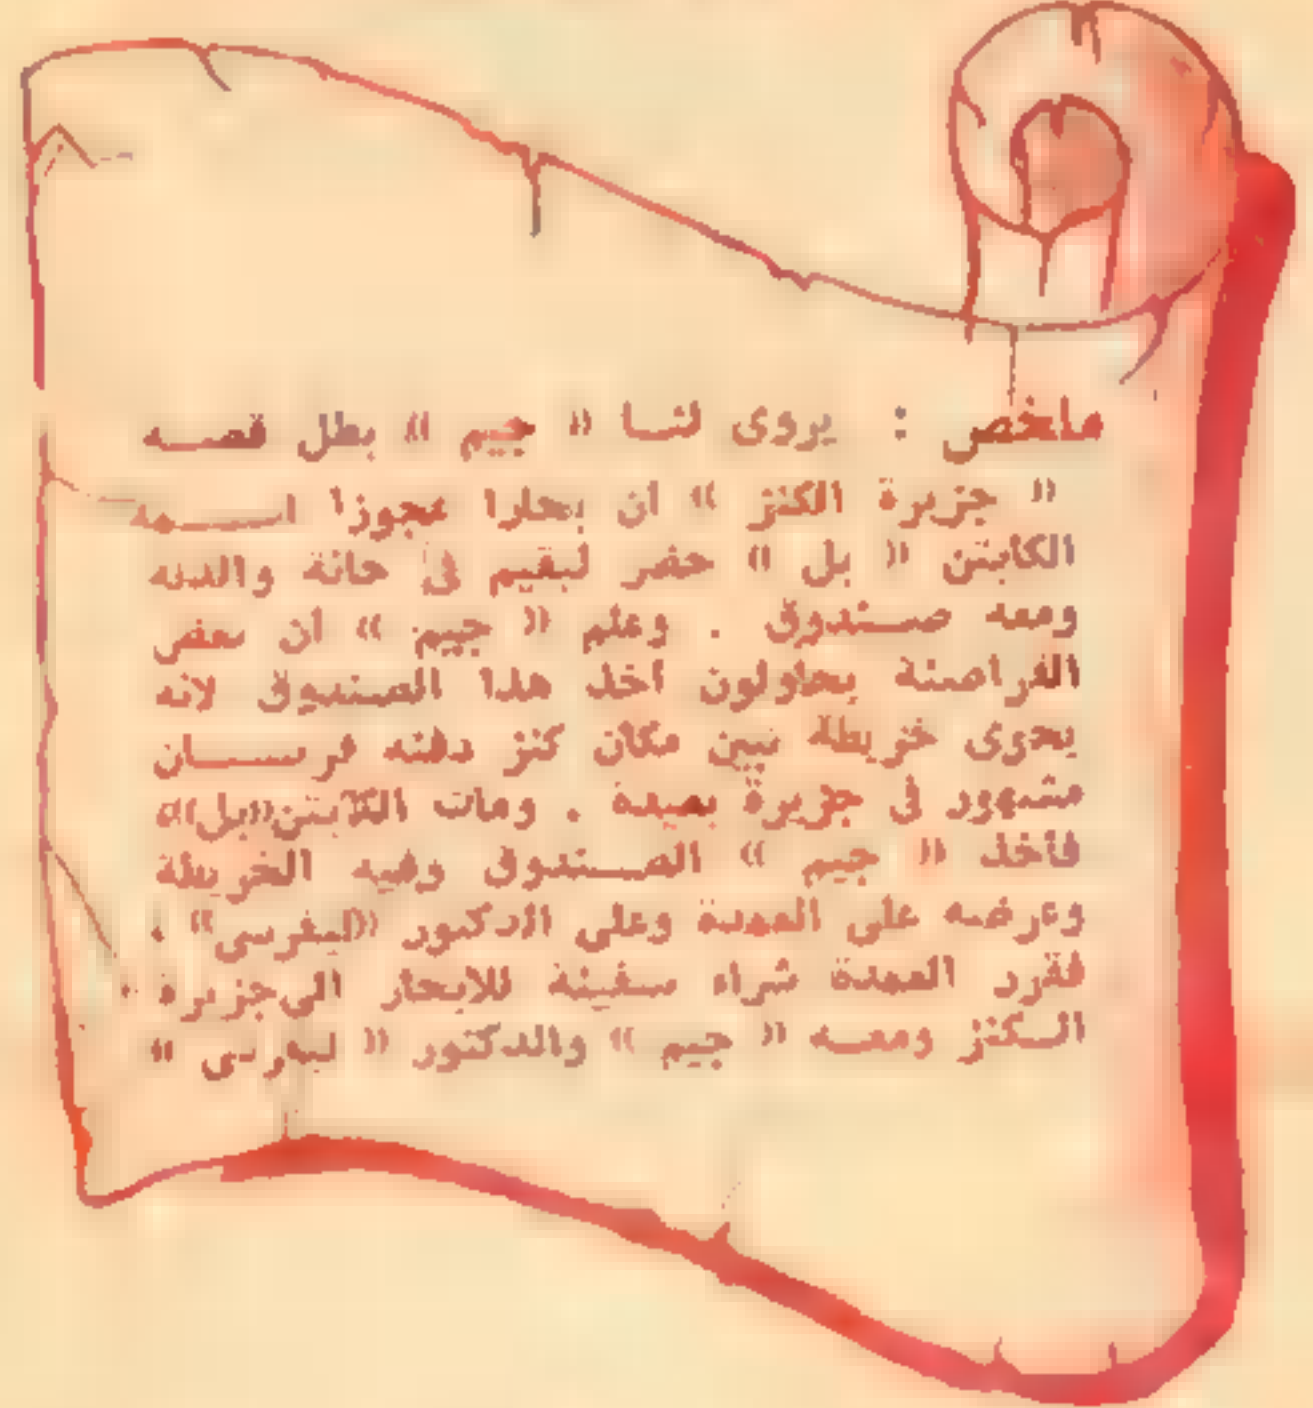 ملخص : يروى لنا « جيم » بطل قصه
« جزيرة الكنز » ان بحارا عجوزا اسمه
الكابتن « بل » حضر ليقيم فى حانة والدته
ومعه صندوق . وعلم « جيم » ان بعض
القراصنة يحاولون أخذ هذا الصندوق لانه
يحوى خريطة تبين مكان كنز دفنه قرسان
مشهور فى جزيرة بعيدة . ومات الكابتن «بل»
فأخذ « جيم » الصندوق وفيه الخريطة
وعرضه على العمدة وعلى الدكتور «ليفرسى» .
فقرر العمدة شراء سفينة للابحار الى جزيرة
الكنز ومعه « جيم » والدكتور « ليفرسى »